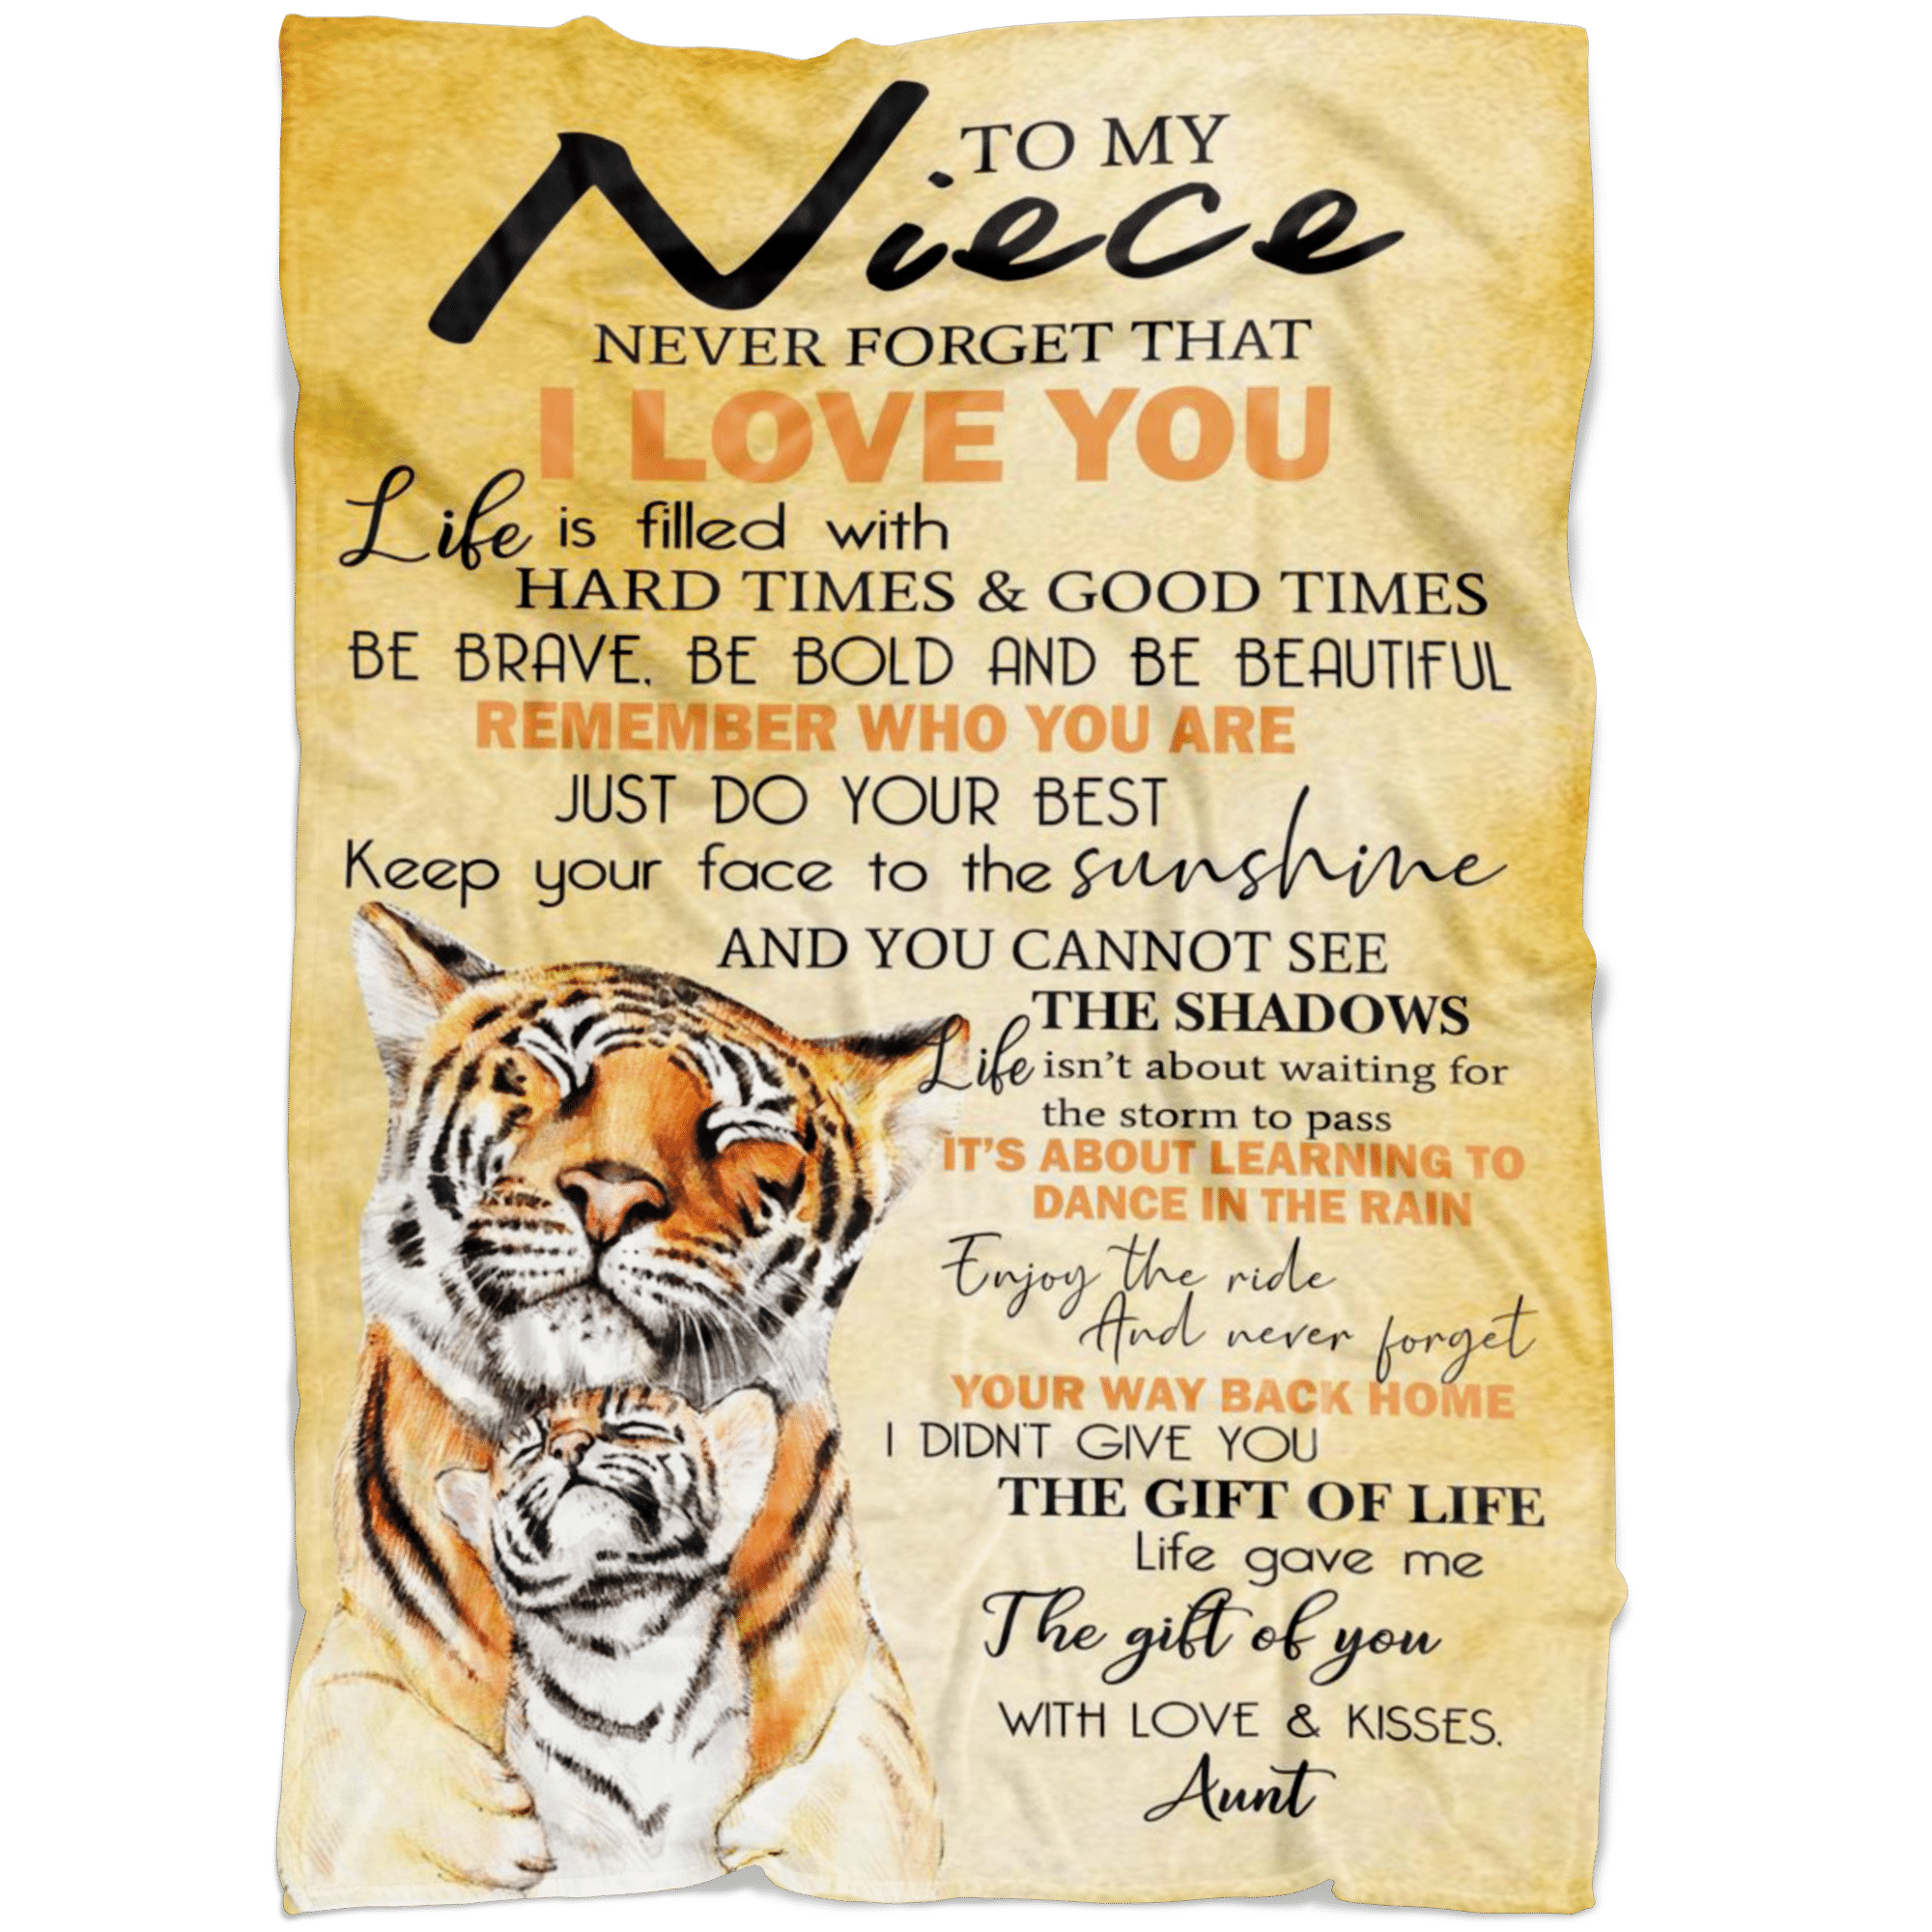 TO MY
Niece
NEVER FORGET THAT
I LOVE YOU
Life is filled with
HARD TIMES & GOOD TIMES
BE BRAVE, BE BOLD AND BE BEAUTIFUL
REMEMBER WHO YOU ARE
JUST DO YOUR BEST
Keep your face to the sunshine
AND YOU CANNOT SEE
THE SHADOWS
Life isn't about waiting for
the storm to pass
IT'S ABOUT LEARNING TO
DANCE IN THE RAIN
Enjoy the ride
And never forget
YOUR WAY BACK HOME
I DIDN'T GIVE YOU
THE GIFT OF LIFE
Life gave me
The gift of you
WITH LOVE & KISSES,
Aunt